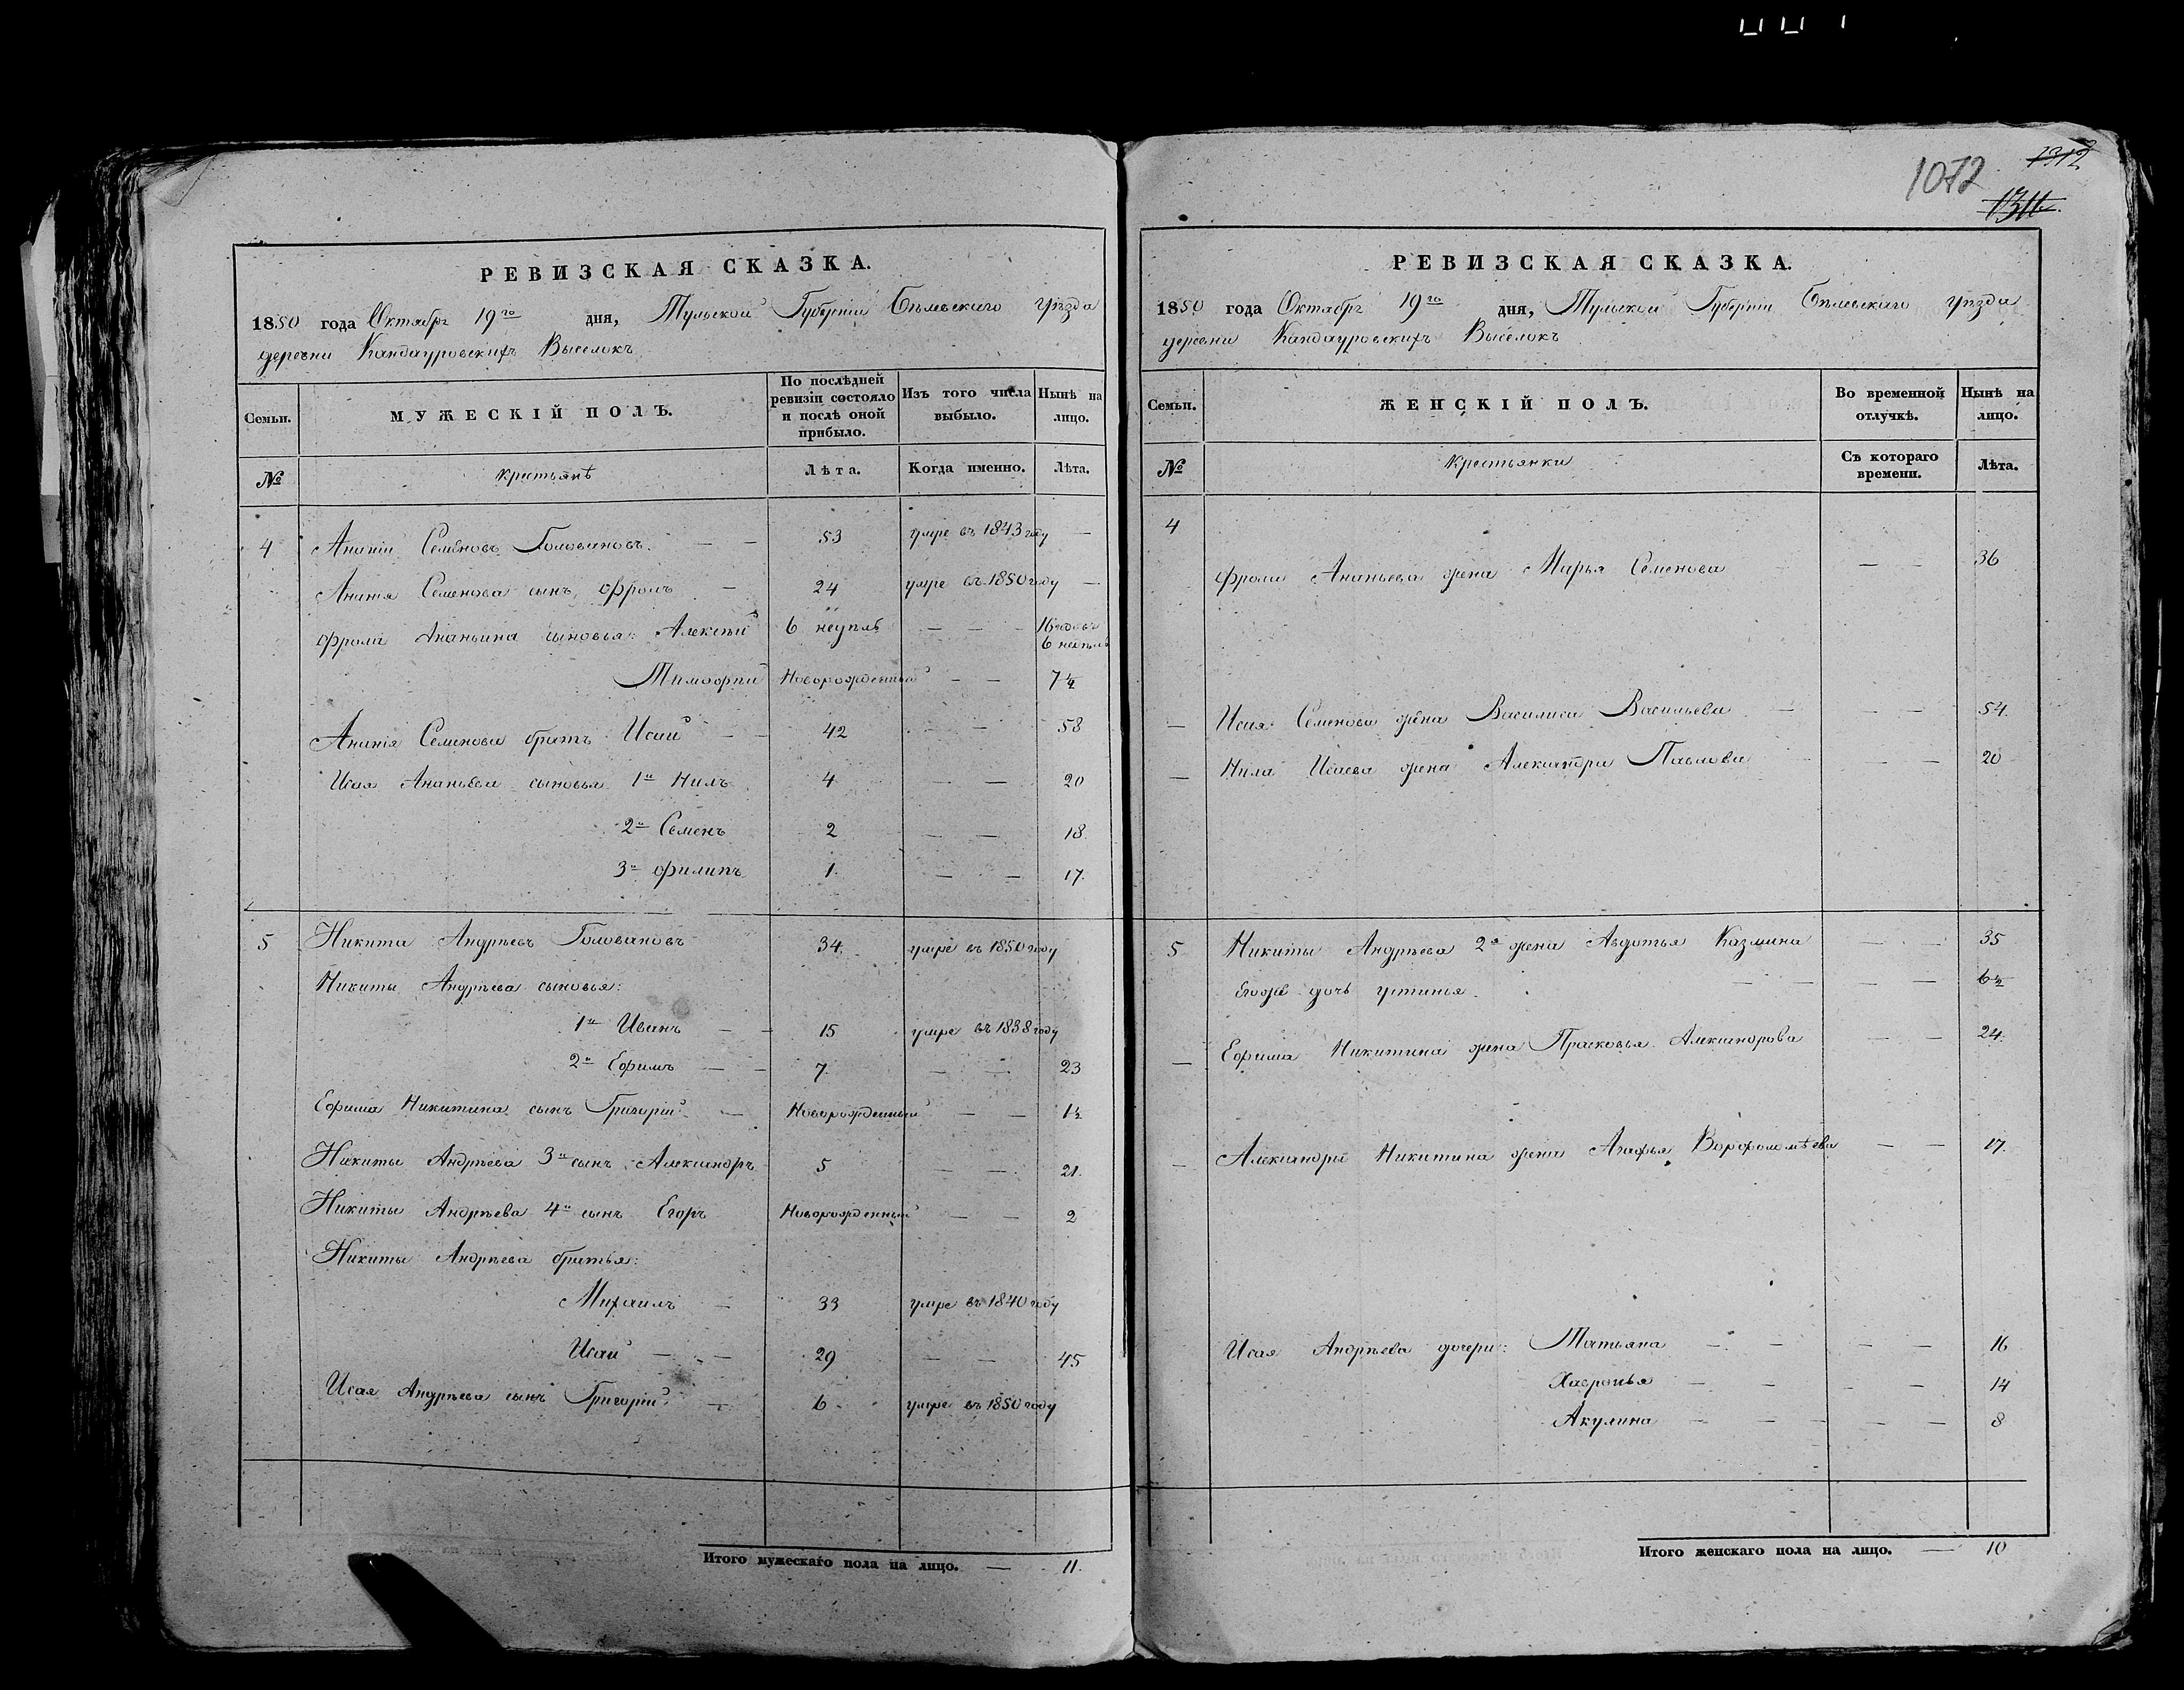 1072
1312
1311
РЕВИЗСКАЯ СКАЗКА.
1850 года Октябр 19го дня, Тульской Губерніи Бѣлевскаго Уѣзда
деревни Кандауровскихъ Выселокъ
Семьи.
МУЖЕСКІЙ ПОЛЪ.
По послѣдней ревизіи состояло и послѣ оной прибыло.
Изъ того числа выбыло.
Нынѣ на лицо.
№
Крестьянѣ
Лѣта.
Когда именно.
Лѣта.
4 Ананій Семеновъ Головановъ — — 53 умре въ 1843 году —
Ананія Семенова сынъ Фролъ — 24 умре въ 1850 году —
Фрола Ананьина сыновья: Алексѣй 6 неупль — — — 16 годовъ
6 неупль
Тимофѣй Новорожденный — — 7 1/4
Ананія Семенова братъ Исай — — 42 — — 58
Исая Ананьева сыновья 1й Нилъ 4 — — 20
2й Семенъ 2 — — 18.
3й Филипъ 1. — — 17.
5 Никита Андрѣевъ Головановъ 34. умре въ 1850 году
Никиты Андрѣева сыновья:
1й Иванъ — — 15 умре въ 1838 году
2й Ефимъ — — 7. — — 23
Ефима Никитина сынъ Григорій — Новорожденный — — 1 1/2
Никиты Андрѣева 3й сынъ Александръ 5 — — 21.
Никиты Андрѣева 4й сынъ Егоръ Новорожденный — — 2
Никиты Андрѣева братья:
Михаилъ — 33 умре въ 1840 году
Исай — — 29 — — 45
Исая Андрѣева сынъ Григорій — 6 умре въ 1850 году
Итого мужескаго пола на лицо. — 11.
РЕВИЗСКАЯ СКАЗКА.
1850 года Октябр 19го дня, Тульской Губерніи Бѣлевскаго Уѣзда
деревни Кандауровскихъ Выселокъ
Семьи.
ЖЕНСКІЙ ПОЛЪ.
Во временной отлучкѣ.
Нынѣ на лицо.
№
Крестьянки
Съ котораго времени.
Лѣта.
4
Фрола Ананьева жена Марья Семенова — — 36
— Исая Семенова жена Василиса Васильева — — — 54.
— Нила Исаева жена Александра Павлова — — 20
5 Никиты Андрѣева 2я жена Авдотья Казмина — — 35
Егожъ дочь Устинья. — — — — 6 1/2
— Ефима Никитина жена Прасковья Александрова — — 24.
— Александра Никитина жена Агафья Ворфоломѣева — — 17.
Исая Андрѣева дочери: Татьяна — — — — 16
Хавронья — — — — 14
Акулина — — — — 8
Итого женскаго пола на лицо. — 10